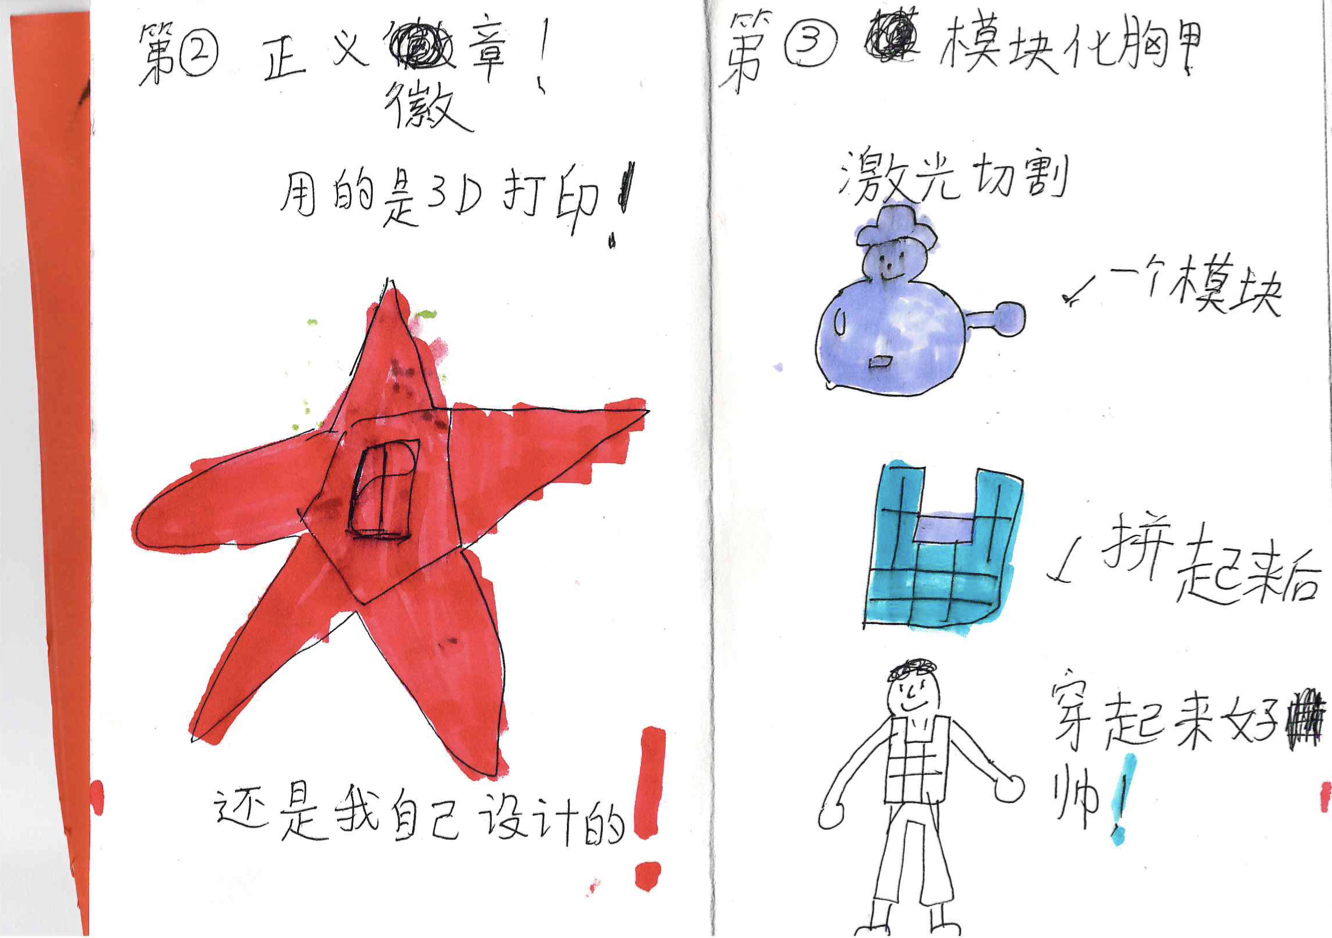 第② 正义章!
徽
用的是3D打印!
还是我自己设计的!
第③ 模块化胸甲!
激光切割
一个模块
拼起来后
穿起来好
帅!